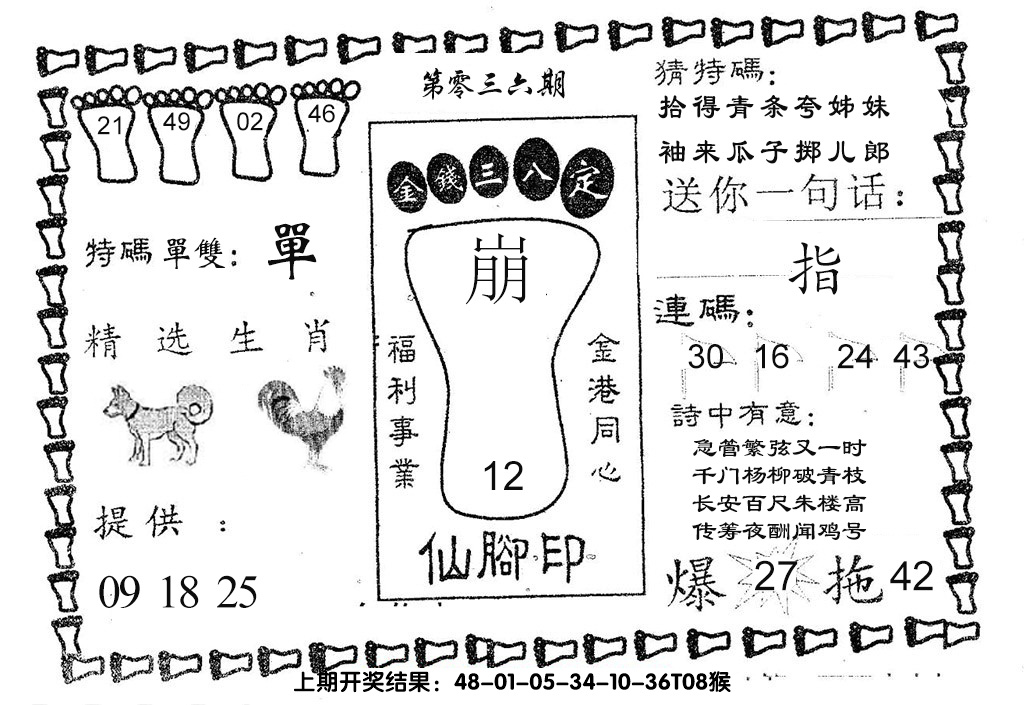 第零三六期
21 49 02 46
特碼單雙：單
精选生肖
提供：
09 18 25
金錢三八定
崩
福利事業
金港同心
12
仙腳印
猜特碼：
拾得青条夸姊妹
袖来瓜子掷儿郎
送你一句话：
指
連碼：
30 16 24 43
詩中有意：
急管繁弦又一时
千门杨柳破青枝
长安百尺朱楼高
传筹夜酬闻鸡号
爆 27 拖 42
上期开奖结果：48-01-05-34-10-36T08猴